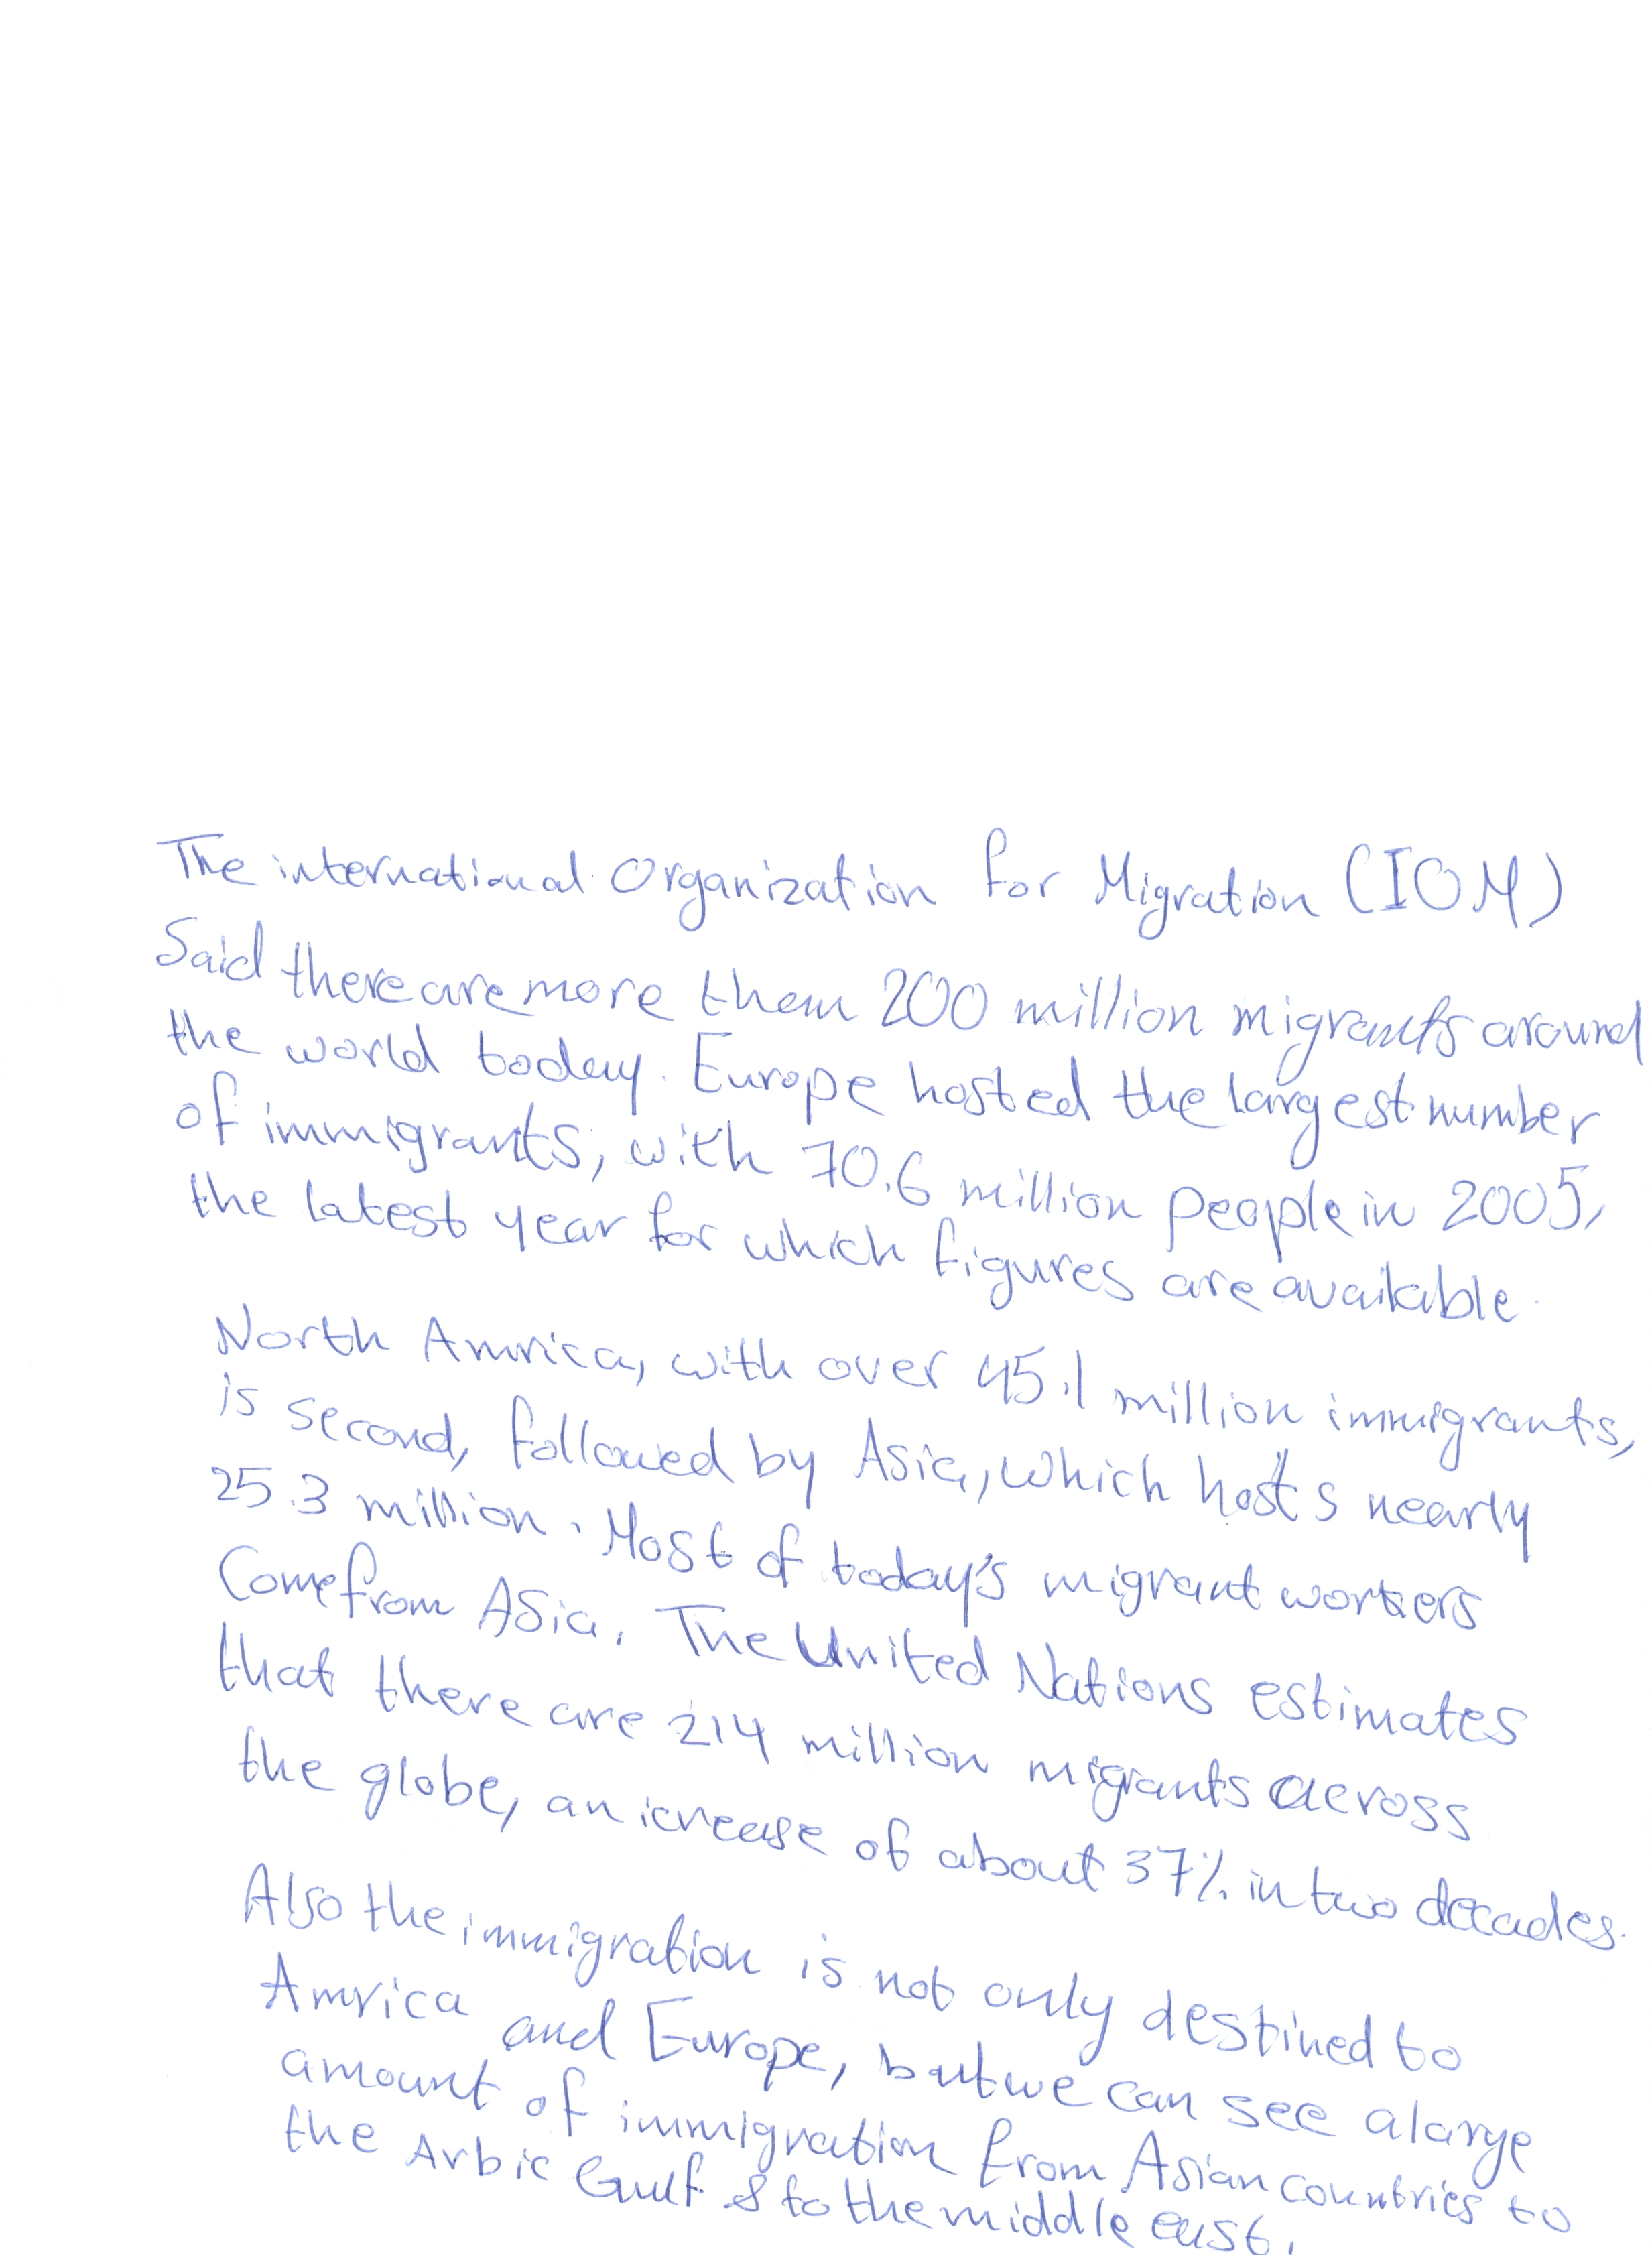 The international Organization for Migration (IOM)
Said there are more than 200 million migrants around
the world today. Europe hosted the largest number
of immigrants, with 70.6 million people in 2005,
the latest year for which figures are available.
North Amrica, with over 45.1 million immigrants,
is second, followed by Asia, which hosts nearly
25.3 million. Most of today's migrant workers
Come from Asia. The United Nations estimates
that there are 214 million migrants across
the globe, an icrease of about 37% in two decades.
Also the immigration is not only destined to
Amrica and Europe, but we can see a large
amount of immigration from Asian countries to
the Arbic Gulf & to the middle east.